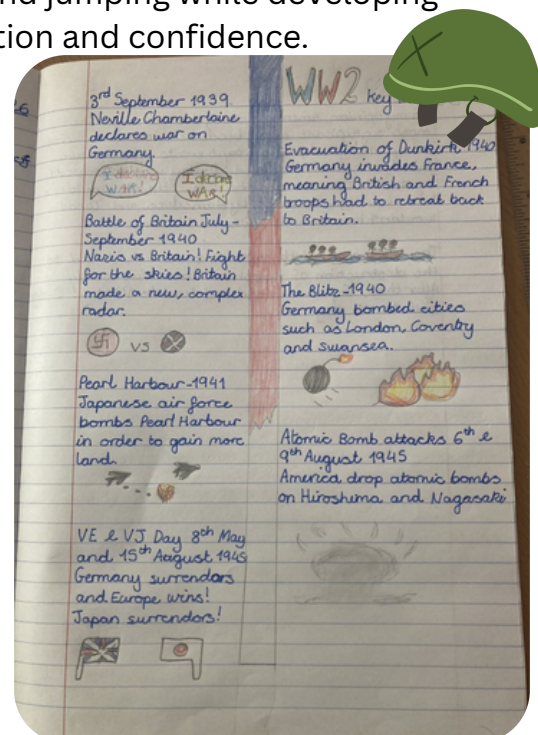 nd jumping while developing
tion and confidence.
WW2 key
3rd September 1939
Neville Chamberlaine
declares war on
Germany
I declare
WAR!
I declare
WAR!
Battle of Britain July-
September 1940
Nazis vs Britain! Fight
for the skies! Britain
made a new, complex
radar.
vs
Pearl Harbour-1941
Japanese air force
bombs Pearl Harbour
in order to gain more
land.
VE & VJ Day 8th May
and 15th August 1945
Germany surrendars
and Europe wins!
Japan surrendors!
Evacuation of Dunkirk 1940
Germany invades France,
meaning British and French
troops had to retreat back
to Britain.
The Blitz-1940
Germany bombed cities
such as London, Coventry
and swansea.
Atomic Bomb attacks 6th &
9th August 1945
America drop atomic bombs
on Hiroshima and Nagasaki